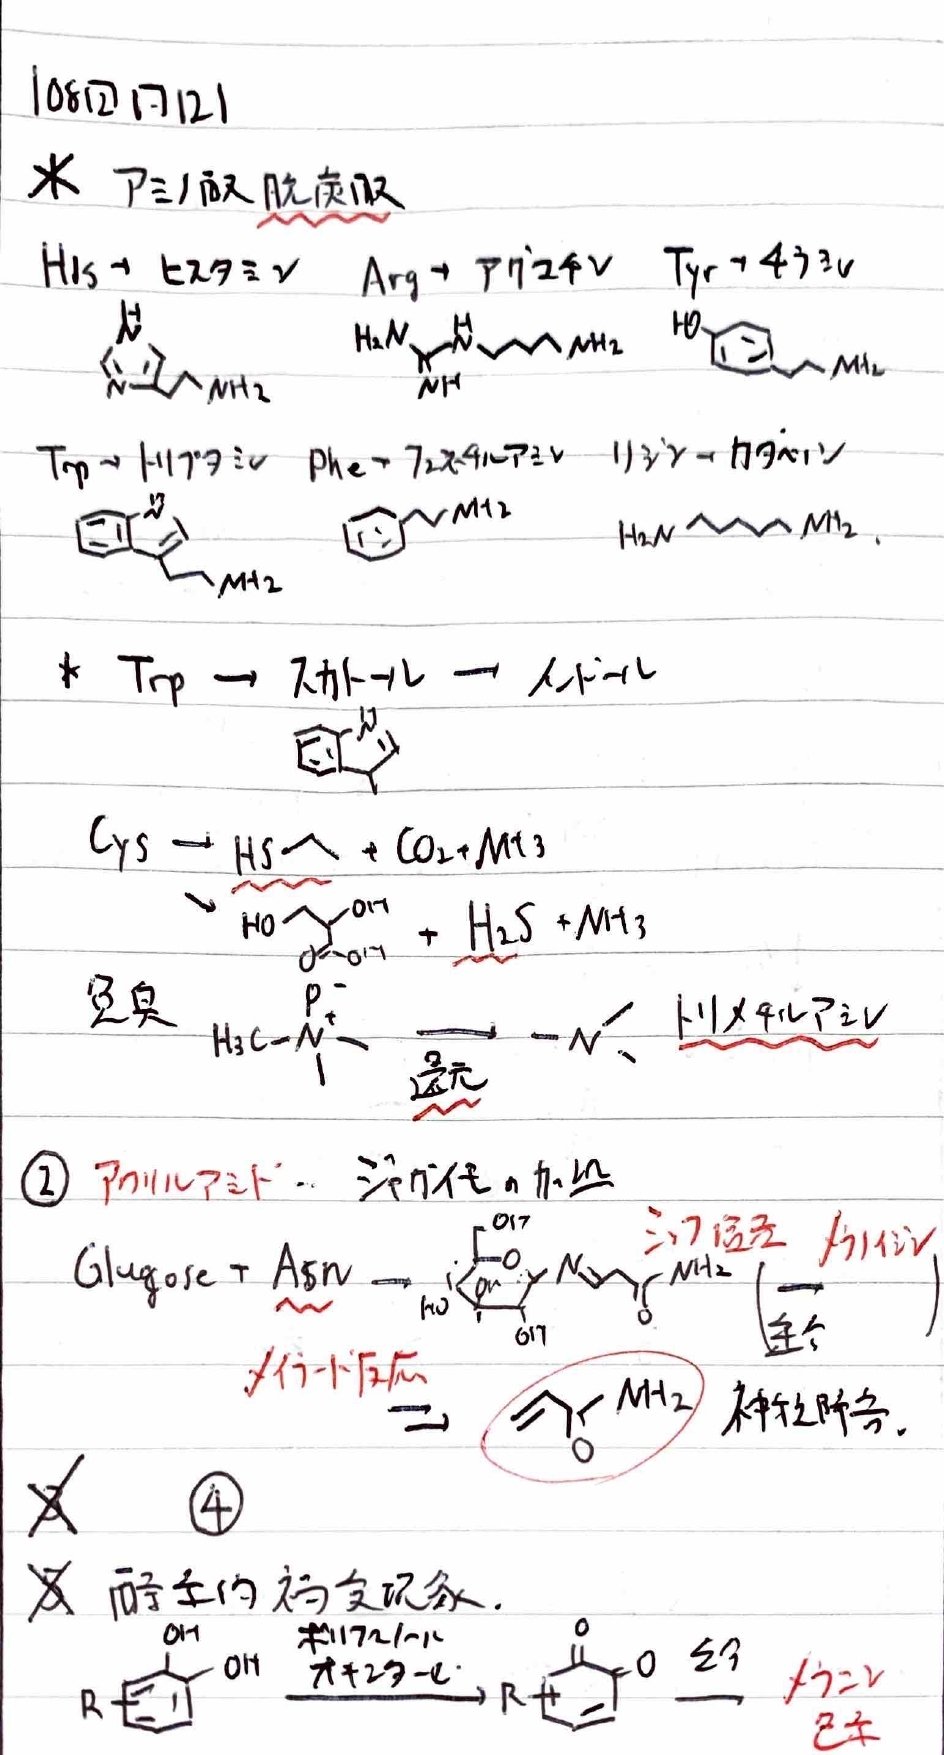 108回 問121
* アミノ酸 脱炭酸
His → ヒスタミン Arg → アグマチン Tyr → チラミン
H N N NH2 H2N H N NH NH2 HO NH2
Trp → トリプタミン Phe → フェネチルアミン リジン → カダベリン
N NH2 NH2 H2N NH2
* Trp → スカトール → インドール
N
Cys → HS + CO2 + NH3
HO OH O OH + H2S + NH3
魚臭 H3C-N+ O- → -N トリメチルアミン
還元
② アクリルアミド … ジャガイモの加熱
Glugose + Asn → OH O OH HO OH N O NH2 シッフ塩基 ( → メラノイジン )
重合
メイラード反応
⇒ NH2 O 神経障害.
④
酵素的褐変現象.
OH OH R ポリフェノール オキシダーゼ → R O O 重合 → メラニン
色素